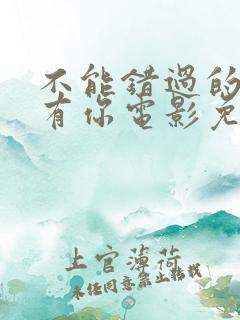 不能错过的
有你电影免
上官薄荷
未经同意禁止转载